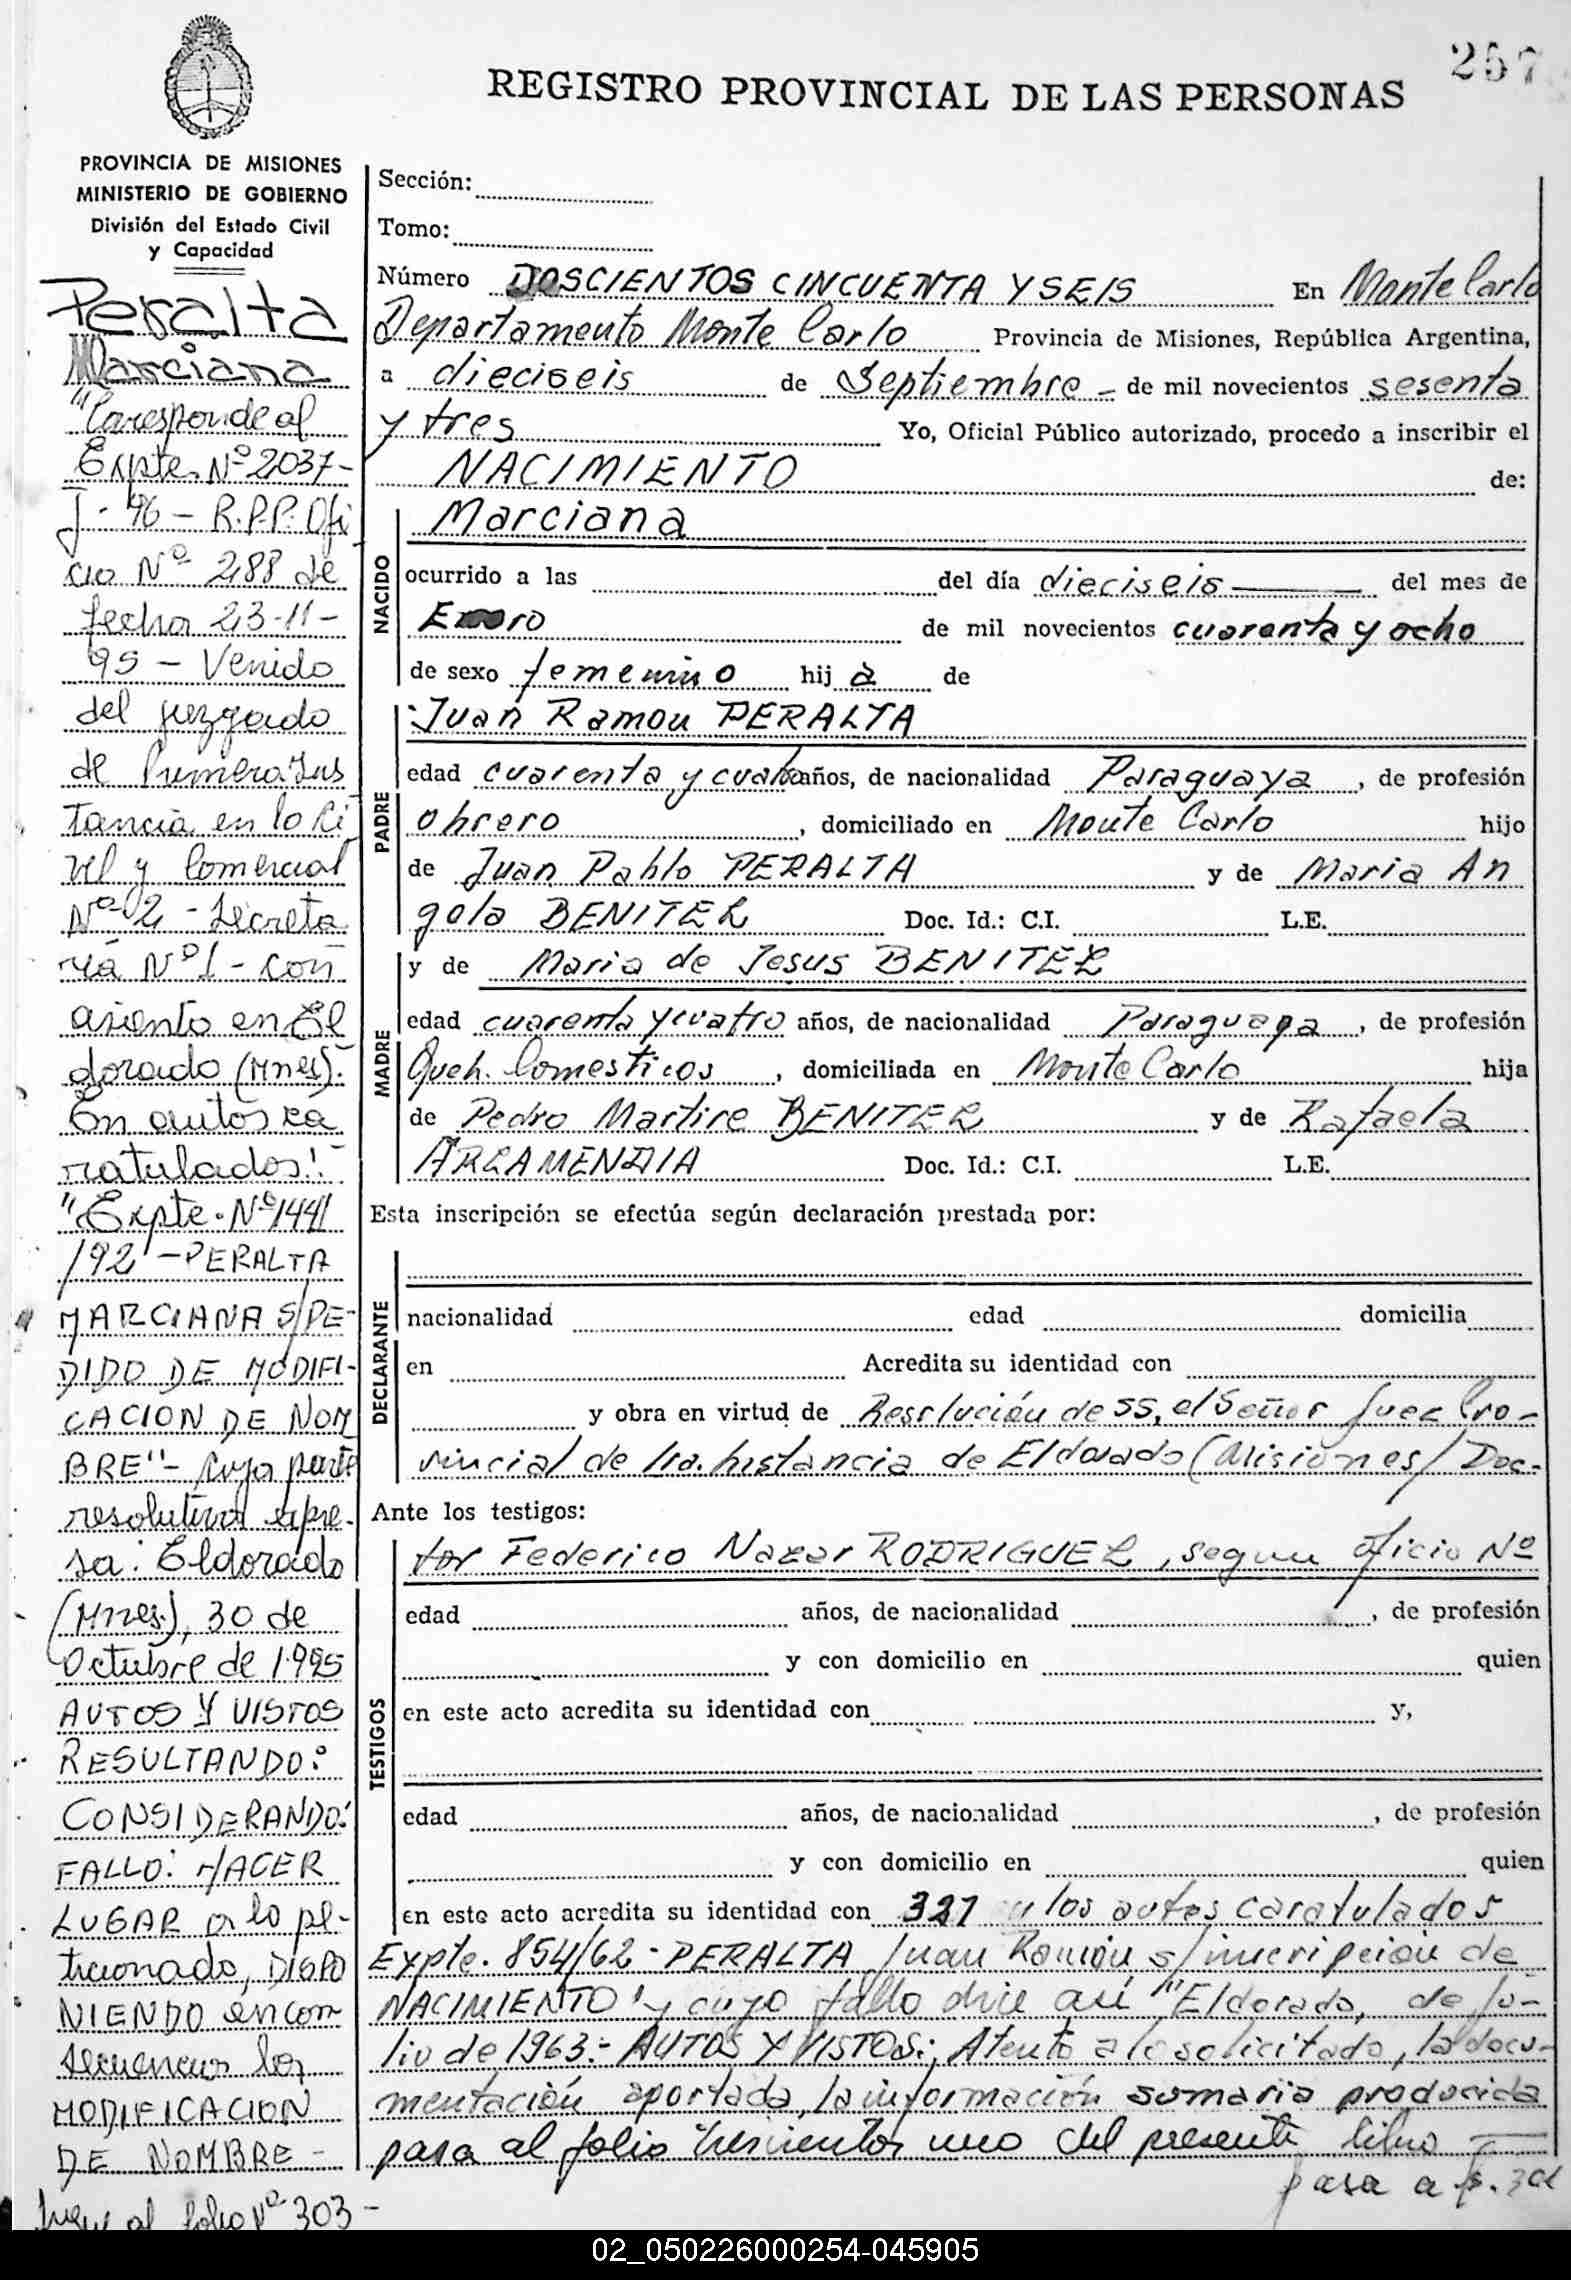 257
REGISTRO PROVINCIAL DE LAS PERSONAS
PROVINCIA DE MISIONES
MINISTERIO DE GOBIERNO
División del Estado Civil
y Capacidad
Peralta
Marciana
"Corresponde al
Expte. Nº 2037-
J-96 - R.P.P. Ofi
cio Nº 288 de
fecha 23-11-
95 - Venido
del juzgado
de Primera Ins
tancia en lo Ci
vil y Comercial
Nº 2 - Secreta
ria Nº 1 - con
asiento en El
dorado (Mnes).-
En autos ca
ratulados:-
"Expte. Nº 1441
/92 - PERALTA
MARCIANA S/PE-
DIDO DE MODIFI-
CACION DE NOM
BRE" - cuya parte
resolutiva expre-
sa: Eldorado
(Mnes.), 30 de
Octubre de 1995
AUTOS Y VISTOS
RESULTANDO:
CONSIDERANDO:
FALLO: HACER
LUGAR a lo pe-
ticionado, DISPO
NIENDO en con
secuencia la
MODIFICACION
DE NOMBRE -
Sigue al folio Nº 303 -
Sección:
Tomo:
Número DOSCIENTOS CINCUENTA Y SEIS En Monte Carlo
Departamento Monte Carlo Provincia de Misiones, República Argentina,
a dieciseis de Septiembre - de mil novecientos sesenta
y tres Yo, Oficial Público autorizado, procedo a inscribir el
NACIMIENTO de:
NACIDO
Marciana
ocurrido a las del día dieciseis del mes de
Enero de mil novecientos cuarenta y ocho
de sexo femenino hij a de
PADRE
Juan Ramon PERALTA
edad cuarenta y cuatro años, de nacionalidad Paraguaya, de profesión
obrero, domiciliado en Monte Carlo hijo
de Juan Pablo PERALTA y de Maria An
gela BENITEZ Doc. Id.: C.I. L.E.
MADRE
y de Maria de Jesus BENITEZ
edad cuarenta y cuatro años, de nacionalidad Paraguaya, de profesión
Queh. Domesticos, domiciliada en Monte Carlo hija
de Pedro Martire BENITEZ y de Rafaela
ARZAMENDIA Doc. Id.: C.I. L.E.
Esta inscripción se efectúa según declaración prestada por:
DECLARANTE
nacionalidad edad domicilia
en Acredita su identidad con
y obra en virtud de Resolución de SS, el Señor Juez Pro-
vincial de 1ra. Instancia de Eldorado (Misiones) Doc-
Ante los testigos:
TESTIGOS
tor Federico Nazar RODRIGUEZ, segun oficio Nº
edad años, de nacionalidad , de profesión
y con domicilio en quien
en este acto acredita su identidad con y,
edad años, de nacionalidad , de profesión
y con domicilio en quien
en este acto acredita su identidad con 321 los autos caratulados
Expte. 854/62 - PERALTA Juan Ramón s/inscripción de
NACIMIENTO" y cuyo fallo dice así "Eldorado, de Ju-
lio de 1963.- AUTOS Y VISTOS: Atento a lo solicitado, la docu-
mentación aportada, la información sumaria producida
pasa al folio trescientos uno del presente libro
pasa a f. 301
02_050226000254-045905